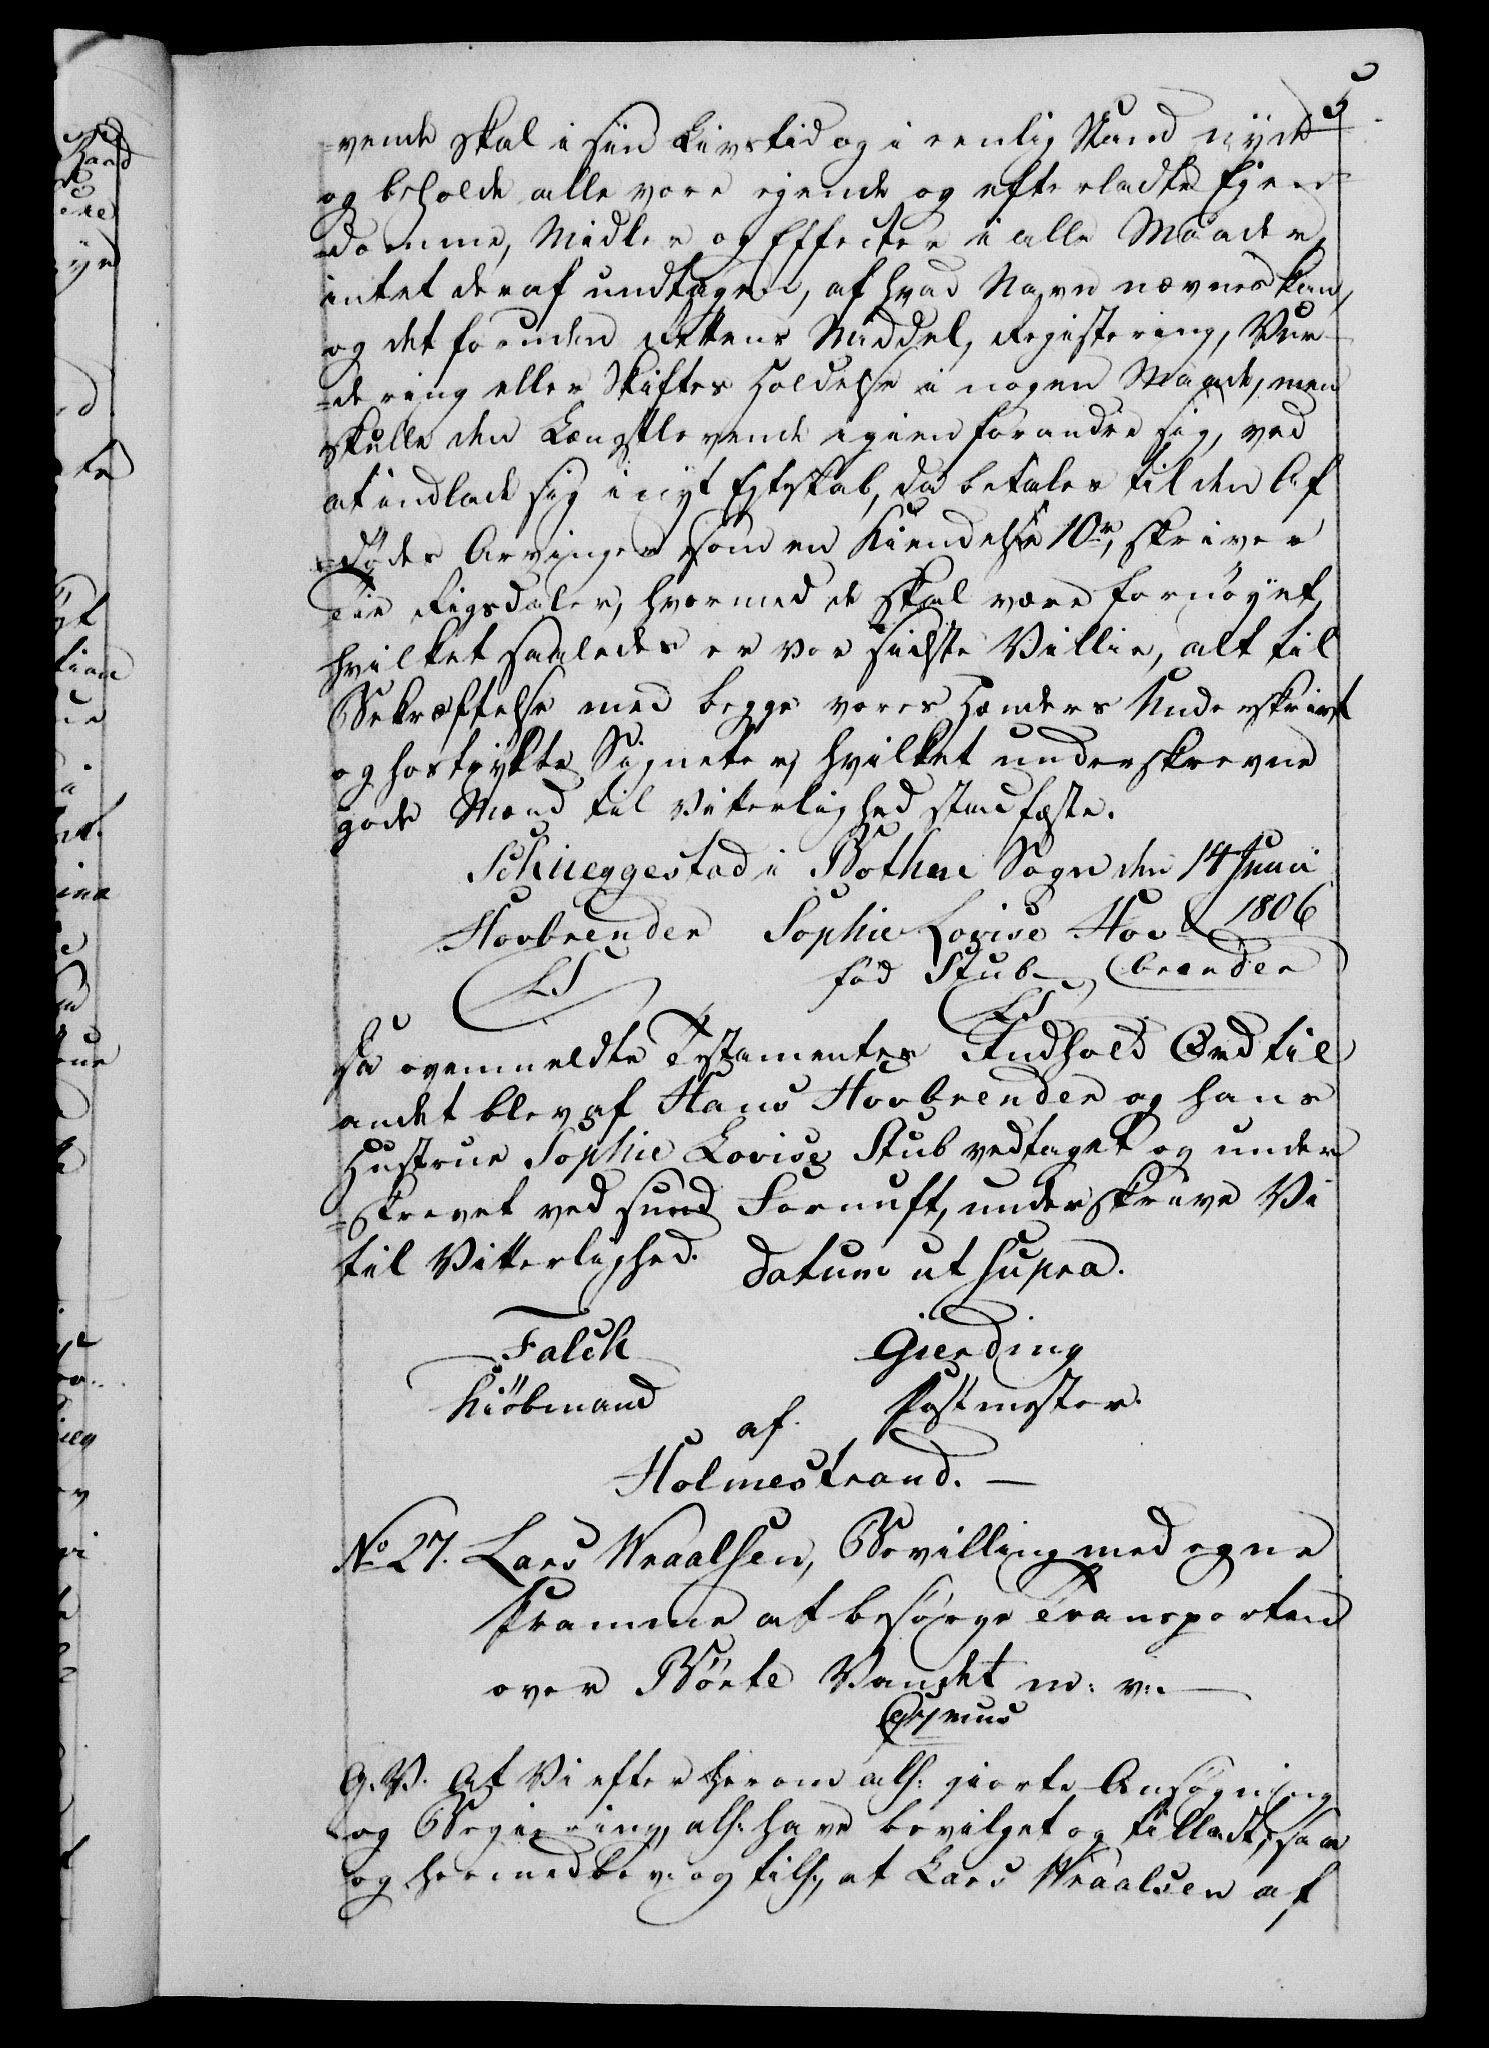 5
=vende skal i sin Livstid og i eenlig Stand nyde
og beholde alle vore ejende og efterladte Ejen=
=domme, Midler og Effecter i alle Maader,
intet deraf undtagen, af hvad Navn nævnes kan,
og det foruden Rettens Middel, Registering, Vur=
=dering eller Skiftes Holdelse i nogen Maade, men
skulle den Længstlevende igien forandre sig, ved
at indlade sig i nyt Egteskab, da betales til den Af
=dødes Arvinger som en Kiendelse 10 r, skriver
Tie Rigsdaler, hvormed de skal være fornøyet,
hvilket saaledes er vor sidste Villie, alt til
Bekræftelse med begge vores Hænders Underskrivt
og hostrykte Signeter, hvilket underskrevne
gode Mænd til Vitterlighed stadfæste.
Schueggestad i Bothne Sogn den 14 Junii
1806
Hovbrender Sophie Lovise Hov=
L.S fød Stub brender
L.S
Da ovenmeldte Testamentes Indhold Ord til
andet blev af Hans Hovbrender og hans
Hustrue Sophie Lovise Stub vedtaget og under
=skrevet ved sund Fornuft, underskrive Vi
til Vitterlighed. Datum ut supra.
Falck Gierding
Kiöbmand Postmester.
af
Holmestrand. —
No 27. Lars Wraalsen, Bevilling med egne
Pramme at besørge Transporten
over Börte Vandet m: v:.
G. V. At Vi efter herom alh: giorte Ansøgning
og Begiering, alh: have bevilget og tilladt, saa
og hermed bev: og till:, at Lars Wraalsen af